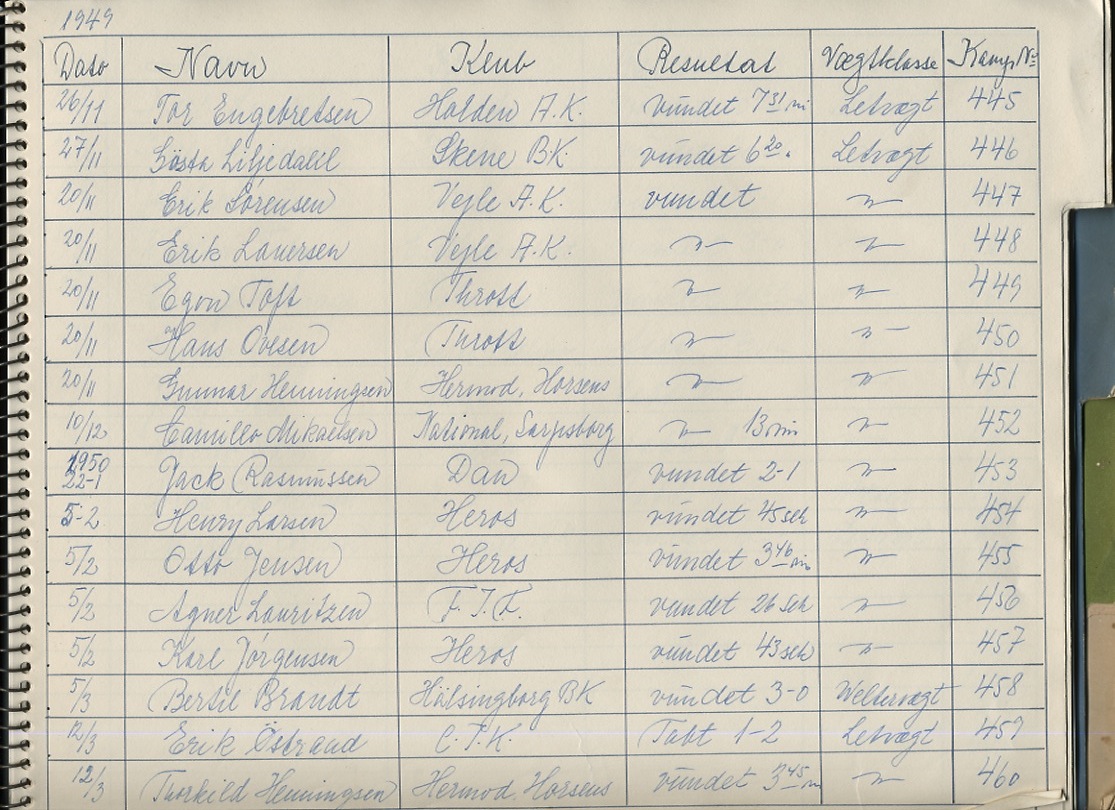 1949
Dato Navn Klub Resultat Vægtklasse Kamp №
26/11 Tor Engebretsen Halden A.K. vundet 7 31 mi Letvægt 445
27/11 Gösta Liljedahl Skene BK. vundet 6 20. Letvægt 446
20/11 Erik Sørensen Vejle A.K. vundet –"– 447
20/11 Erik Lauersen Vejle A.K. –"– –"– 448
20/11 Egon Toft Thrott –"– –"– 449
20/11 Hans Ovesen Thrott –"– –"– 450
20/11 Gunnar Henningsen Hermod, Horsens –"– –"– 451
10/12 Camillo Mikaelsen National, Sarpsborg –"– 13 min –"– 452
1950
22-1 Jack Rasmussen Dan vundet 2-1 –"– 453
5-2 Henry Larsen Heros vundet 45 sek –"– 454
5/2 Otto Jensen Heros vundet 3 46 min –"– 455
5/2 Agner Lauritzen F.I.F. vundet 26 sek –"– 456
5/2 Karl Jørgensen Heros vundet 43 sek –"– 457
5/3 Bertil Brandt Hälsingborg BK vundet 3-0 Weltervægt 458
12/3 Erik Östrand C.T.K. Tabt 1-2 Letvægt 459
12/3 Thorkild Henningsen Hermod, Horsens vundet 3 45 m –"– 460